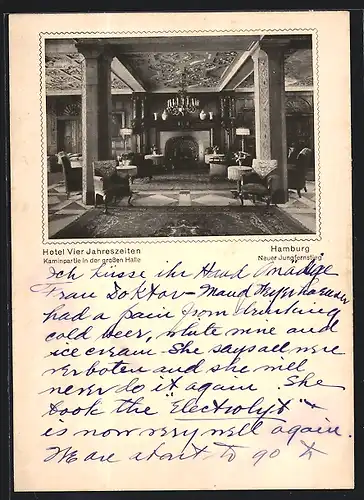 Hotel Vier Jahreszeiten
Kaminpartie in der großen Halle
Hamburg
Neuer Jungfernstieg
Ich küsse ihr Hand Gnadige
Frau Doktor - Maud
had a pain from drinking
cold beer, white wine and
ice cream - She says all were
verboten and she will
never do it again. She
took the "Electrolyt" &
is now very well again.
We are about to go to